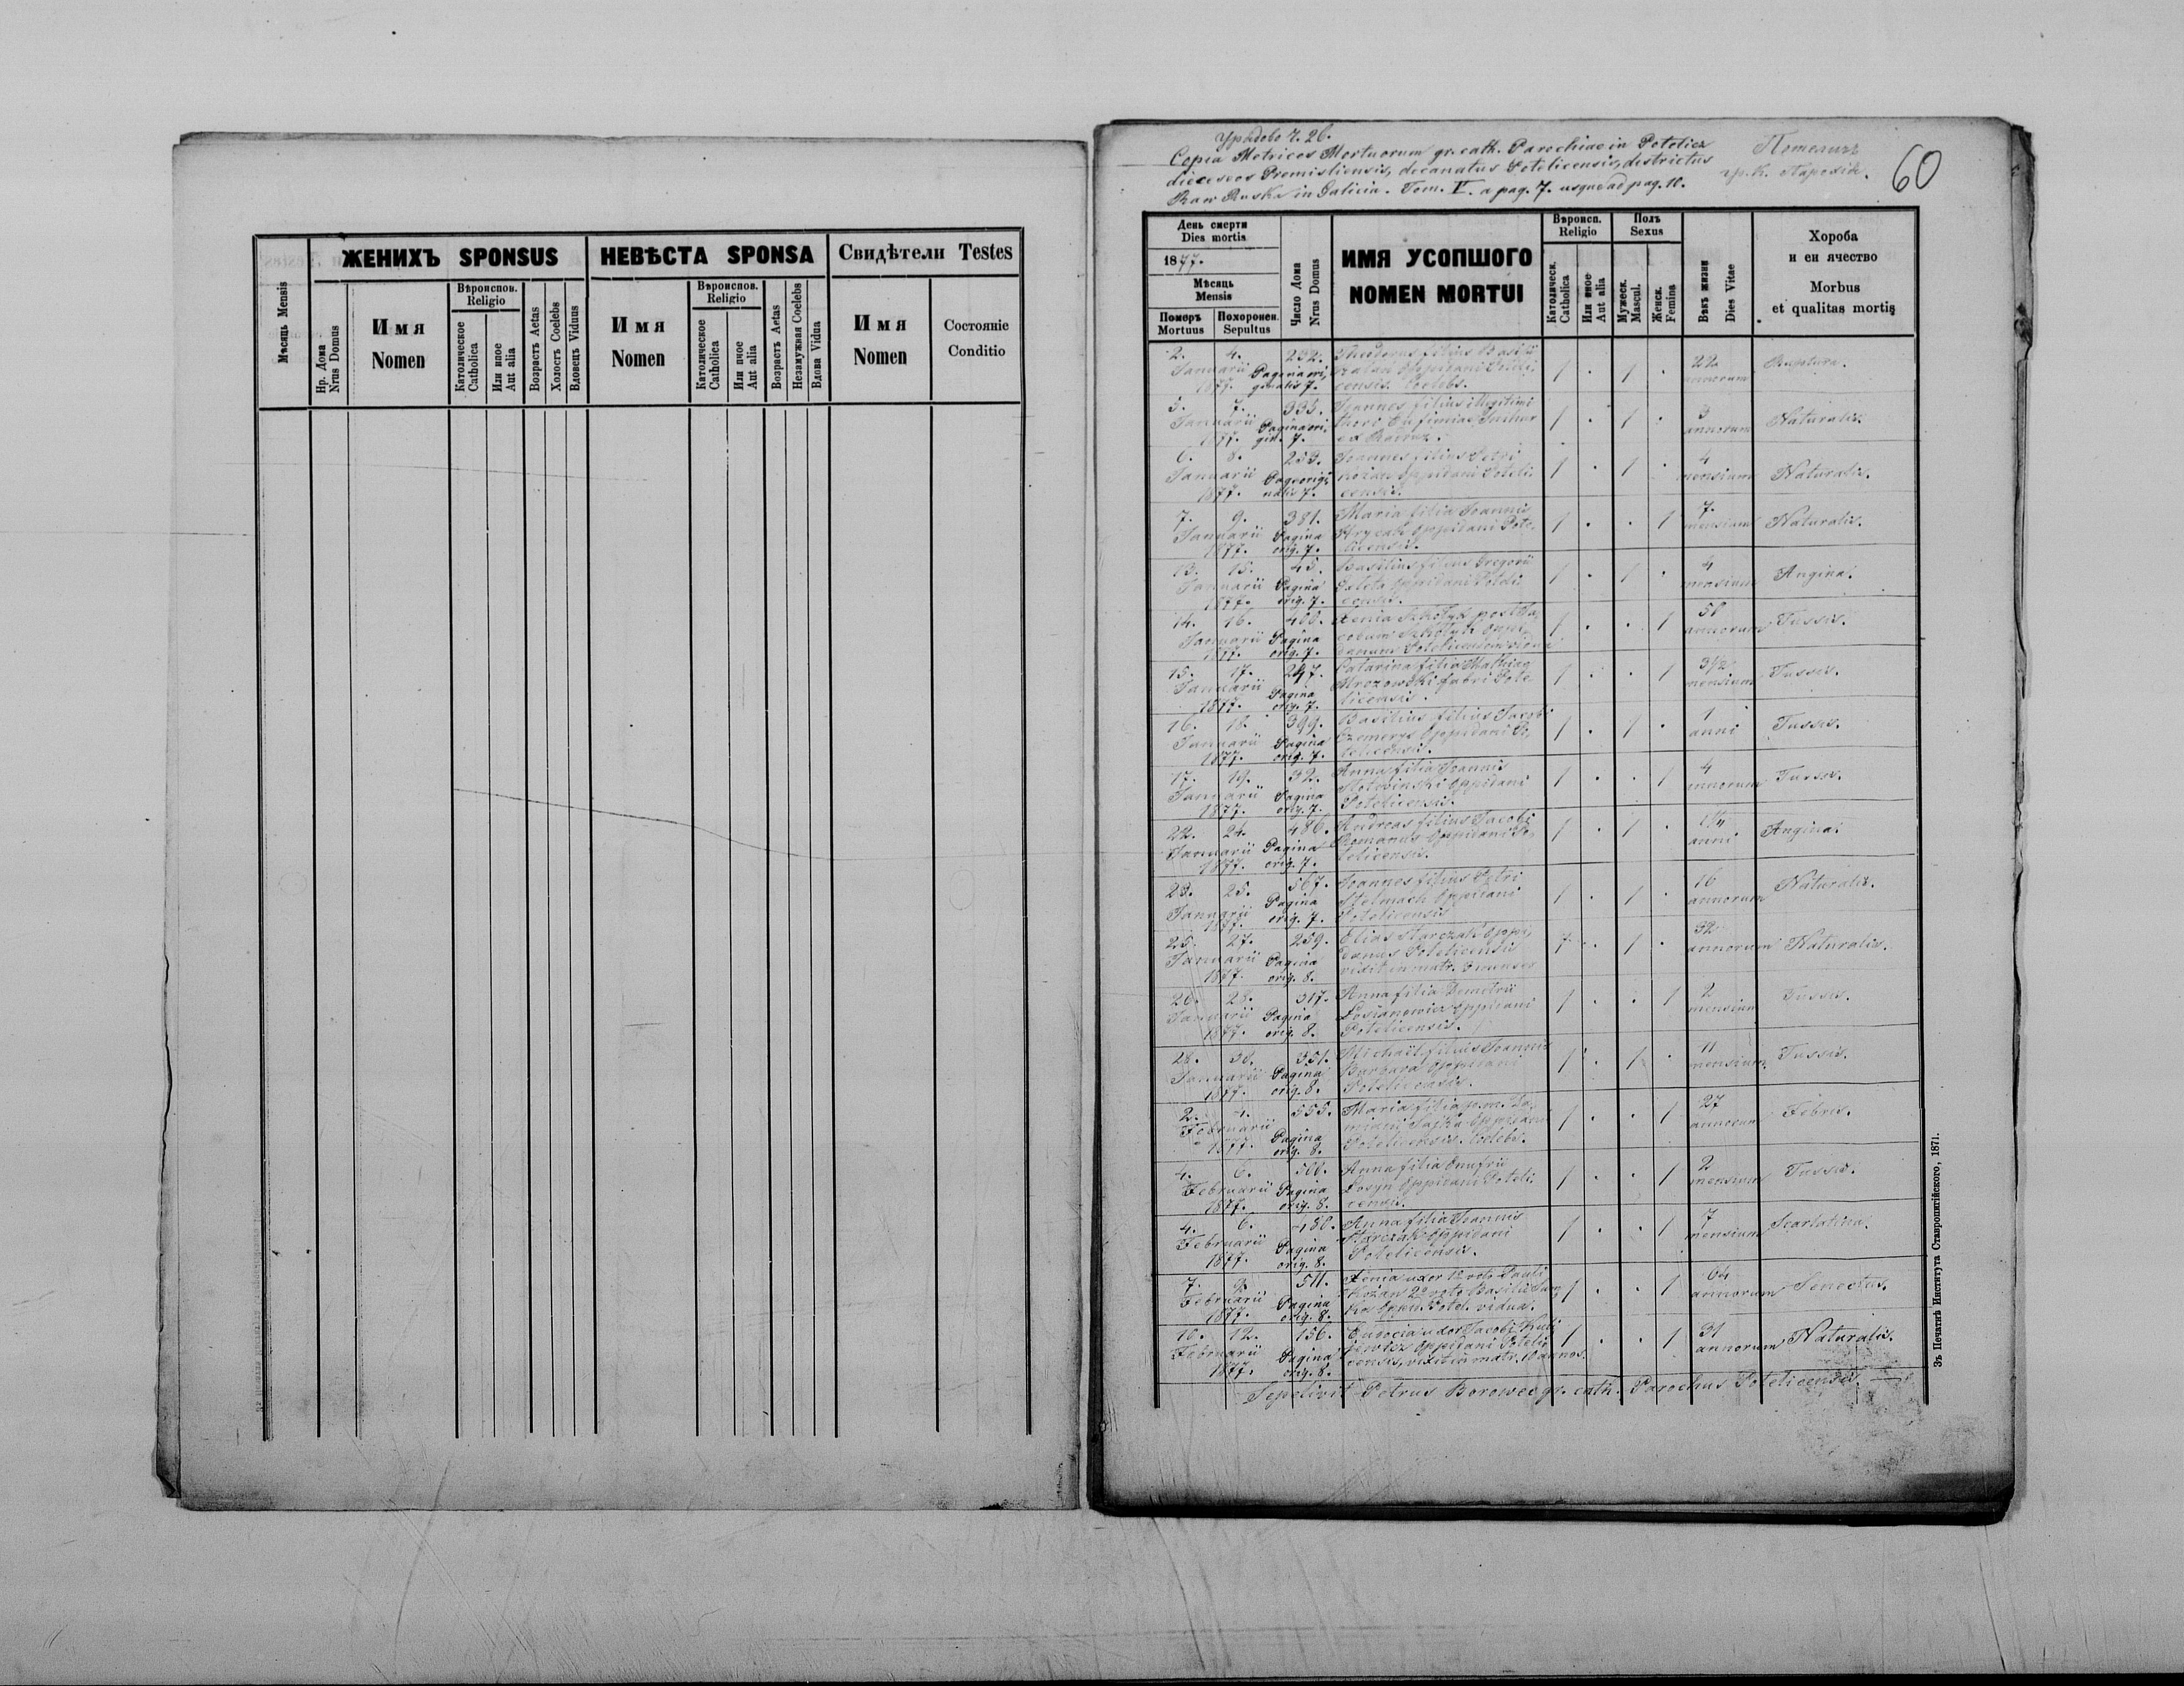 ЖЕНИХЪ SPONSUS
НЕВѢСТА SPONSA
Свидѣтели Testes
Мѣсяць Mensis
Нр. Дома
Nrus Domus
Имя
Nomen
Вѣроиспов.
Religio
Католическое
Catholica
Или иное
Aut alia
Возрастъ Aetas
Холостъ Coelebs
Вдовецъ Viduus
Имя
Nomen
Вѣроиспов.
Religio
Католическое
Catholica
Или иное
Aut alia
Возрастъ Aetas
Незамужная Coelebs
Вдова Vidua
Имя
Nomen
Состояніе
Conditio
Урядово ч. 26.
Copia Metrices Mortuorum gr. cath. Parochiae in Potelicz
dieceseos Premisliensis, decanatus Potelicensis, districtus
Rawa Ruska in Galicia. Tom. V. a pag. 7. usque ad pag. 10.
60
День смерти
Dies mortis
1877.
Мѣсяць
Mensis
Померъ
Mortuus
Похоронен.
Sepultus
Число Дома
Nrus Domus
ИМЯ УСОПШОГО
NOMEN MORTUI
Вѣроисп.
Religio
Католическ.
Catholica
Или иное
Aut alia
Полъ
Sexus
Мужеск.
Mascul.
Женск.
Femina
Вѣкъ жизни
Dies Vitae
Хороба
и еи ячество
Morbus
et qualitas mortis
2. 4. 232. Theodorus filius Basilii
Januarii Pagina ori, Oppidani Poteli,
1877. ginalis 7. censis. Coelebs. 1 . 1 . 22 annorum Ruptura.
5. 7. 335. Joannes filius illegitimi
Januarii Pagina ori, thori Eufimiae
1877. gin. 7. 1 . 1 . 3 annorum Naturalis.
6. 8. 253. Joannes filius Petri
Januarii Pag. origi, Oppidani Poteli
1877. nalis 7. censis. 1 . 1 . 4 mensium Naturalis.
7. 9. 381. Maria filia Joannis
Januarii Pagina Hrycak Oppidani Pote,
1877. orig. 7. licensis. 1 . . 1 7. mensium Naturalis.
13. 15. 45. Basilius filius Gregorii
Januarii Pagina Oppidani Poteli
1877. orig. 7. censis. 1 . 1 . 4 mensium Angina.
14. 16. 400. Xenia post Ja,
Januarii Pagina cobum Oppi,
1877. orig. 7. danum Potelicensem vidua 1 . . 1 50 annorum Tussis.
15. 17. 247. Catarina filia Mathiae
Januarii Pagina Mrozowski fabri Pote
1877. orig. 7. licensis. 1 . . 1 3 1/2 mensium Tussis.
16. 18. 399. Basilius filius Jacobi
Januarii Pagina Czemerys Oppidani Po,
1877. orig. 7. telicensis. 1 . 1 . 1 anni Tussis.
17. 19. 32. Anna filia Joannis
Januarii Pagina Oppidani
1877. orig. 7. Potelicensis. 1 . . 1 4 annorum Tussis.
22. 24. 486. Andreas filius Jacobi
Januarii Pagina Romanus Oppidani Po,
1877. orig. 7. telicensis. 1 . 1 . anni Angina.
23. 25. 567. Joannes filius Petri
Januarii Pagina Stelmach Oppidani
1877. orig. 7. Potelicensis 1 . 1 . 16 annorum Naturalis.
25. 27. 259. Elias Starczak Oppi,
Januarii Pagina danus Potelicensis
1877. orig. 8. vixit in matr. 1 . 1 . 32 annorum Naturalis.
26. 28. 317. Anna filia Demetrii
Januarii Pagina Oppidani
1877. orig. 8. Potelicensis. 1 . . 1 2 mensium Tussis.
28. 30. 351. Michaël filius Joannis
Januarii Pagina Oppidani
1877. orig. 8. Potelicensis. 1 . 1 . 11 mensium Tussis.
2. 4. 555. Maria filia
Februarii Pagina Oppidani
1877. orig. 8. Potelicensis. Coelebs. 1 . . 1 27 annorum Febris.
4. 6. Anna filia Onufrii
Februarii Pagina Oppidani Poteli
1877. orig. 8. censis. 1 . . 1 2 mensium Tussis.
4. 6. 480. Anna filia Joannis
Februarii Pagina Starczak Oppidani
1877. orig. 8. Potelicensis. 1 . . 1 7 mensium Scarlatina.
7. 9. 511. Xenia uxor 1º voto Pauli
Februarii Pagina 2º voto Basilii
1877. orig. 8. Oppid. Potel. vidua. 1 . . 1 64 annorum Senectus.
10. 12. 156. Eudocia uxor Jacobi
Februarii Pagina Oppidani Poteli
1877. orig. 8. censis, vixit in matr. 10 annos. 1 . . 1 31 annorum Naturalis.
Sepelivit Petrus Borowec gr. cath. Parochus Potelicensis.
Зъ Печатнѣ Института Ставропигійского, 1871.